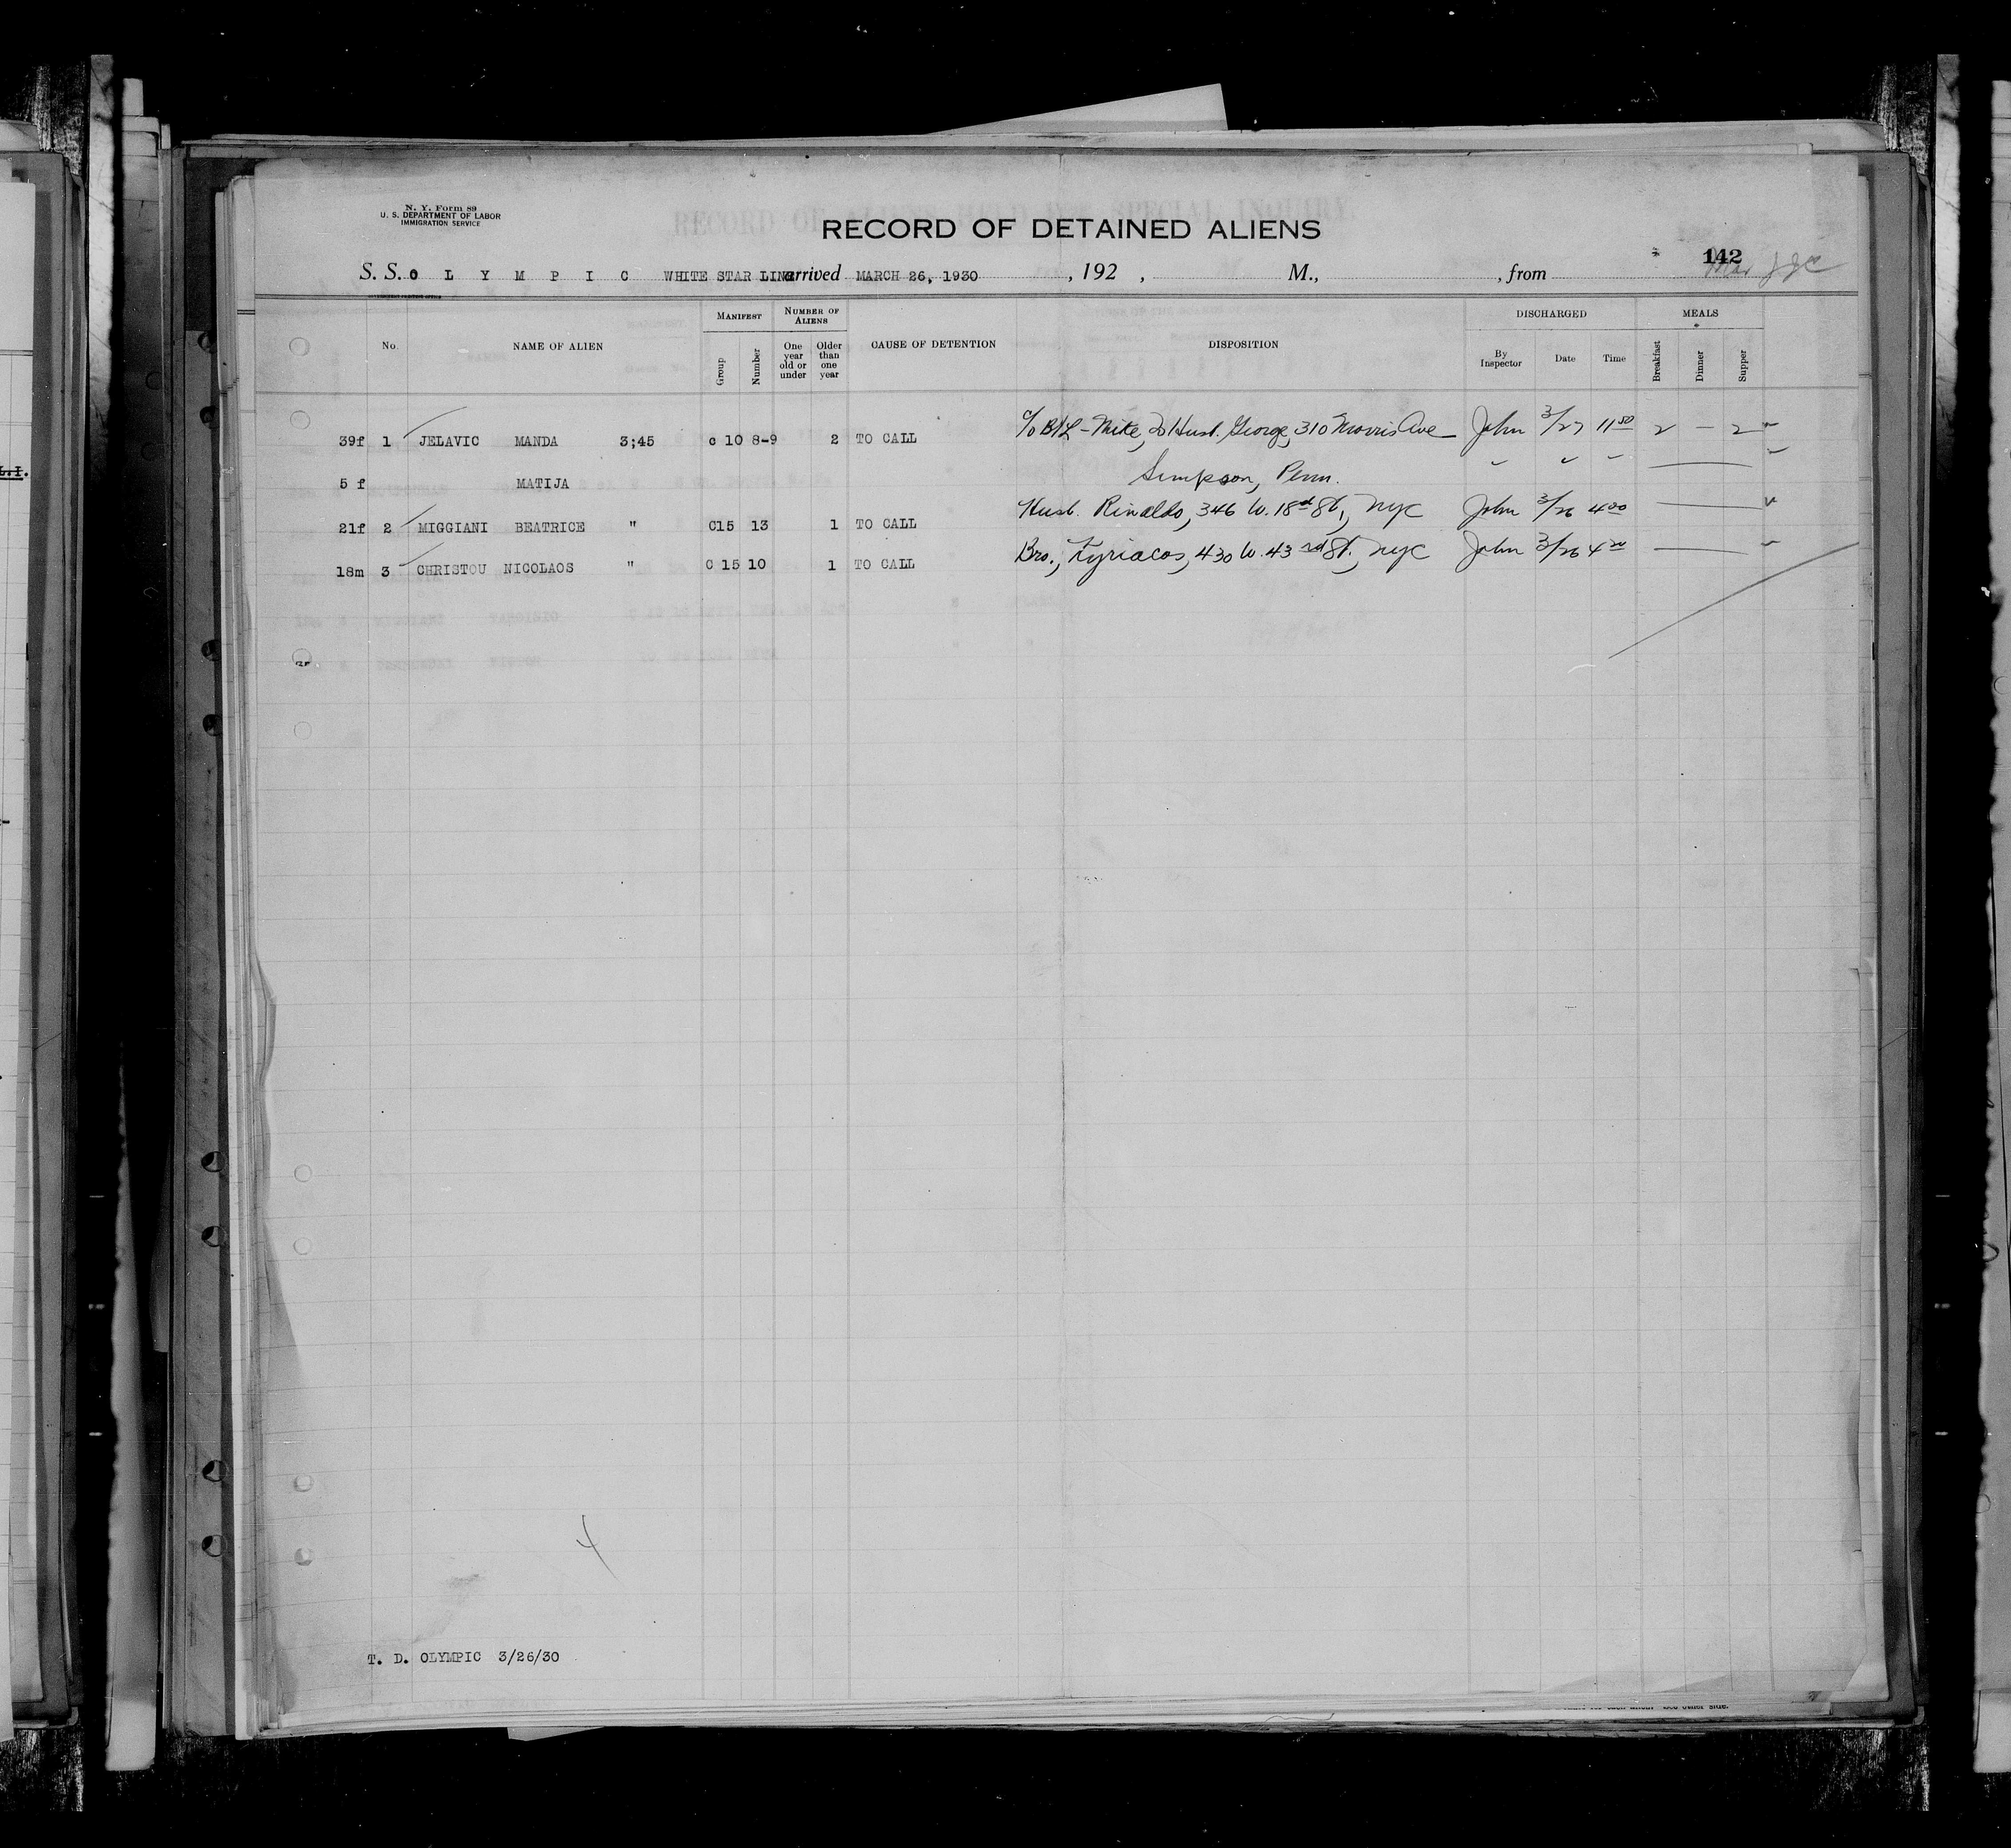 N. Y. Form 89
U. S. DEPARTMENT OF LABOR
IMMIGRATION SERVICE
RECORD OF DETAINED ALIENS
142
S. S. O L Y M P I C WHITE STAR LINE arrived MARCH 26, 1930 , 192 , M., , from
No. NAME OF ALIEN MANIFEST Group Number NUMBER OF ALIENS One year old or under Older than one year CAUSE OF DETENTION DISPOSITION DISCHARGED By Inspector Date Time MEALS Breakfast Dinner Supper
39f 1 JELAVIC MANDA 3;45 c 10 8-9 2 TO CALL c/o B/L - Mike, to Husb. George, 310 Morris Ave John 3/27 11 50 2 - 2
5 f MATIJA Simpson, Penn.
21f 2 MIGGIANI BEATRICE " C15 13 1 TO CALL Husb. Rinaldo, 346 W. 18th St., NYC John 3/26 4 00
18m 3 CHRISTOU NICOLAOS " C 15 10 1 TO CALL Bro., Kyriacos, 430 W. 43rd St., NYC John 3/26 4 20
4
T. D. OLYMPIC 3/26/30